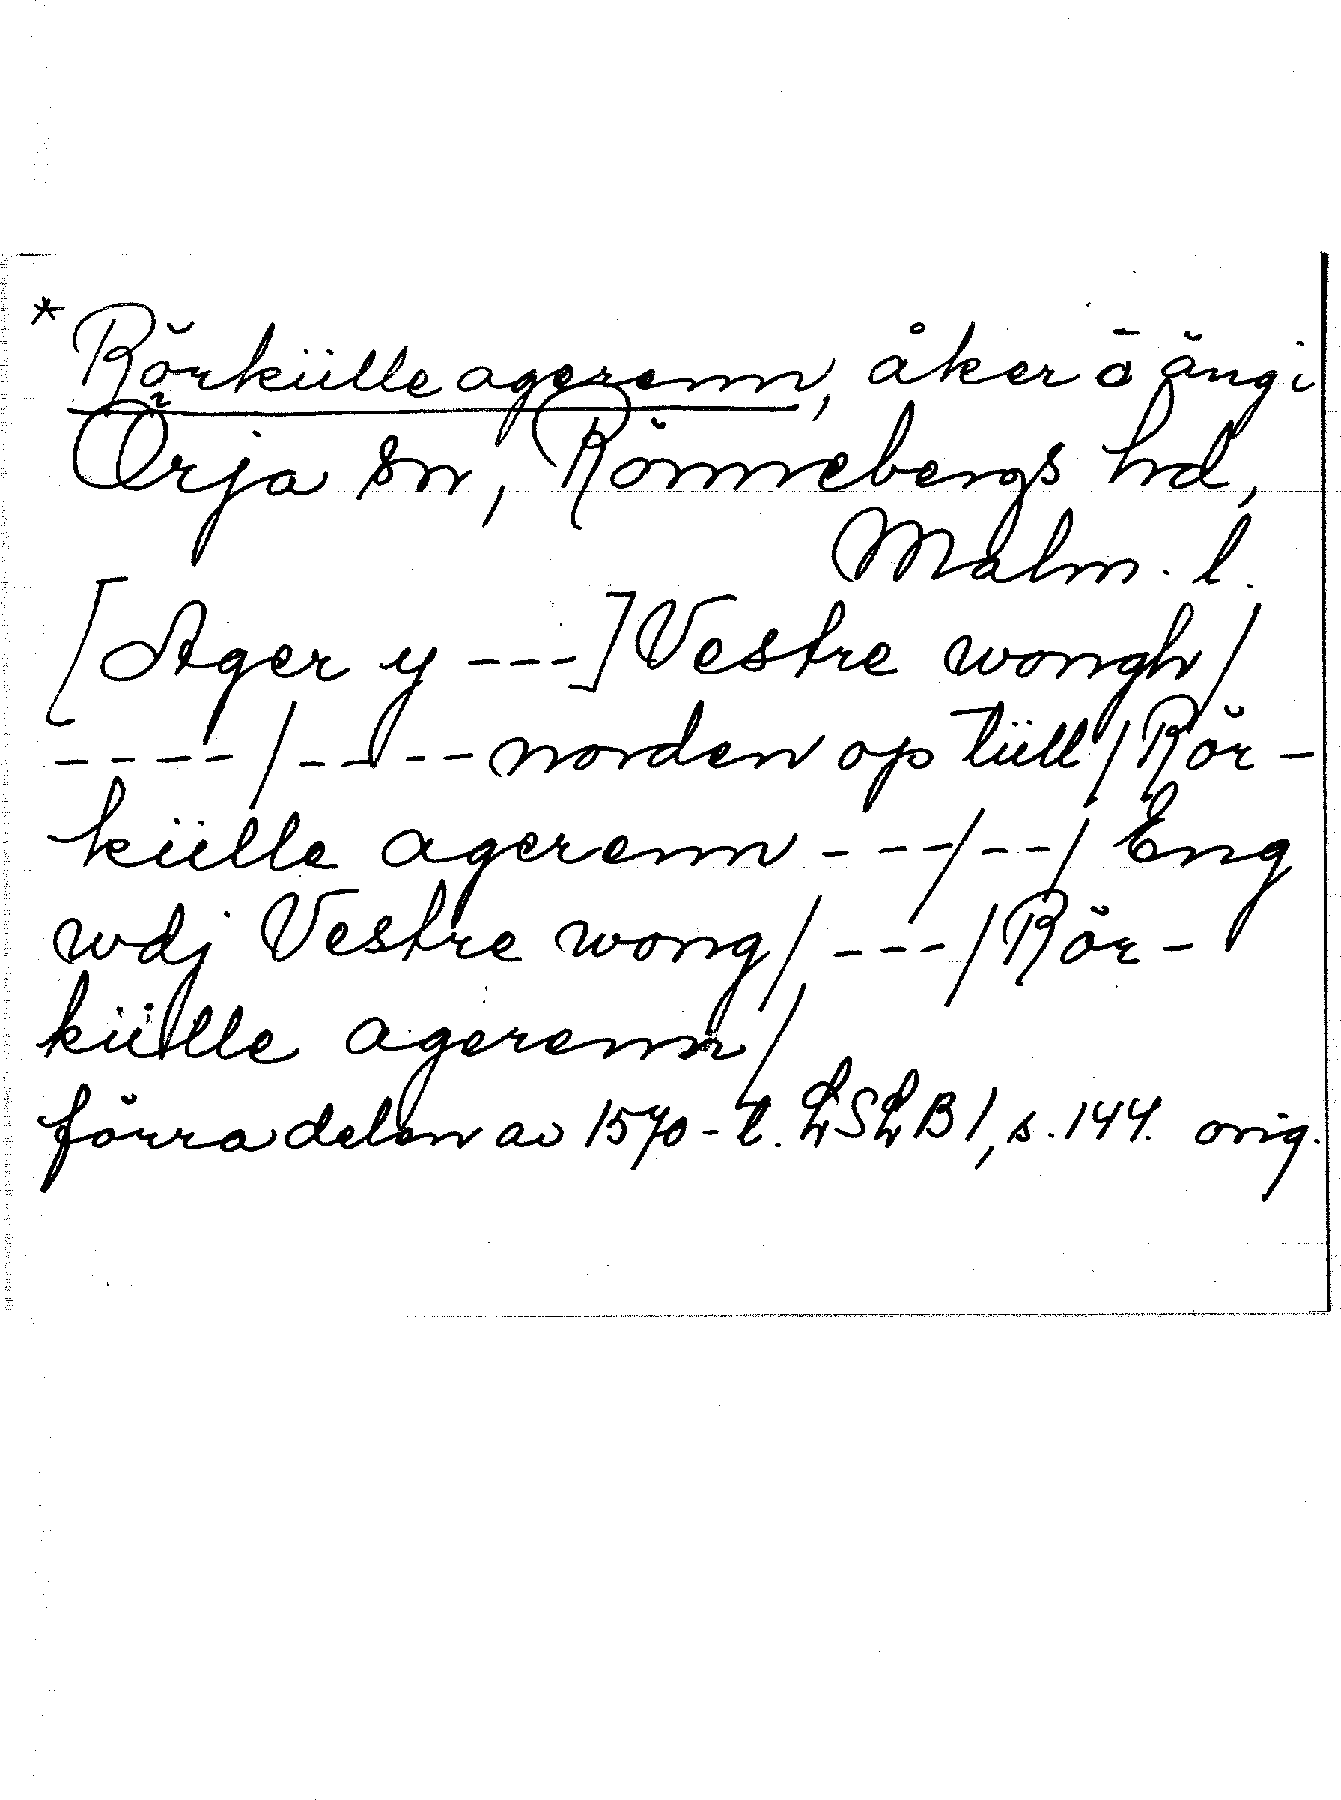 * Rörkülle agerenn, åker o äng i
Örja sn, Rönnebergs hd,
Malm. l.
[Ager y ---] Vestre wongh/
----/----norden op tüll/Rör-
külle agerenn ---/--/ Eng
wdj Vestre wong/ ---/Rör-
külle agerenn/
förra delen av 1570-t. LSLB 1, s. 144. orig.